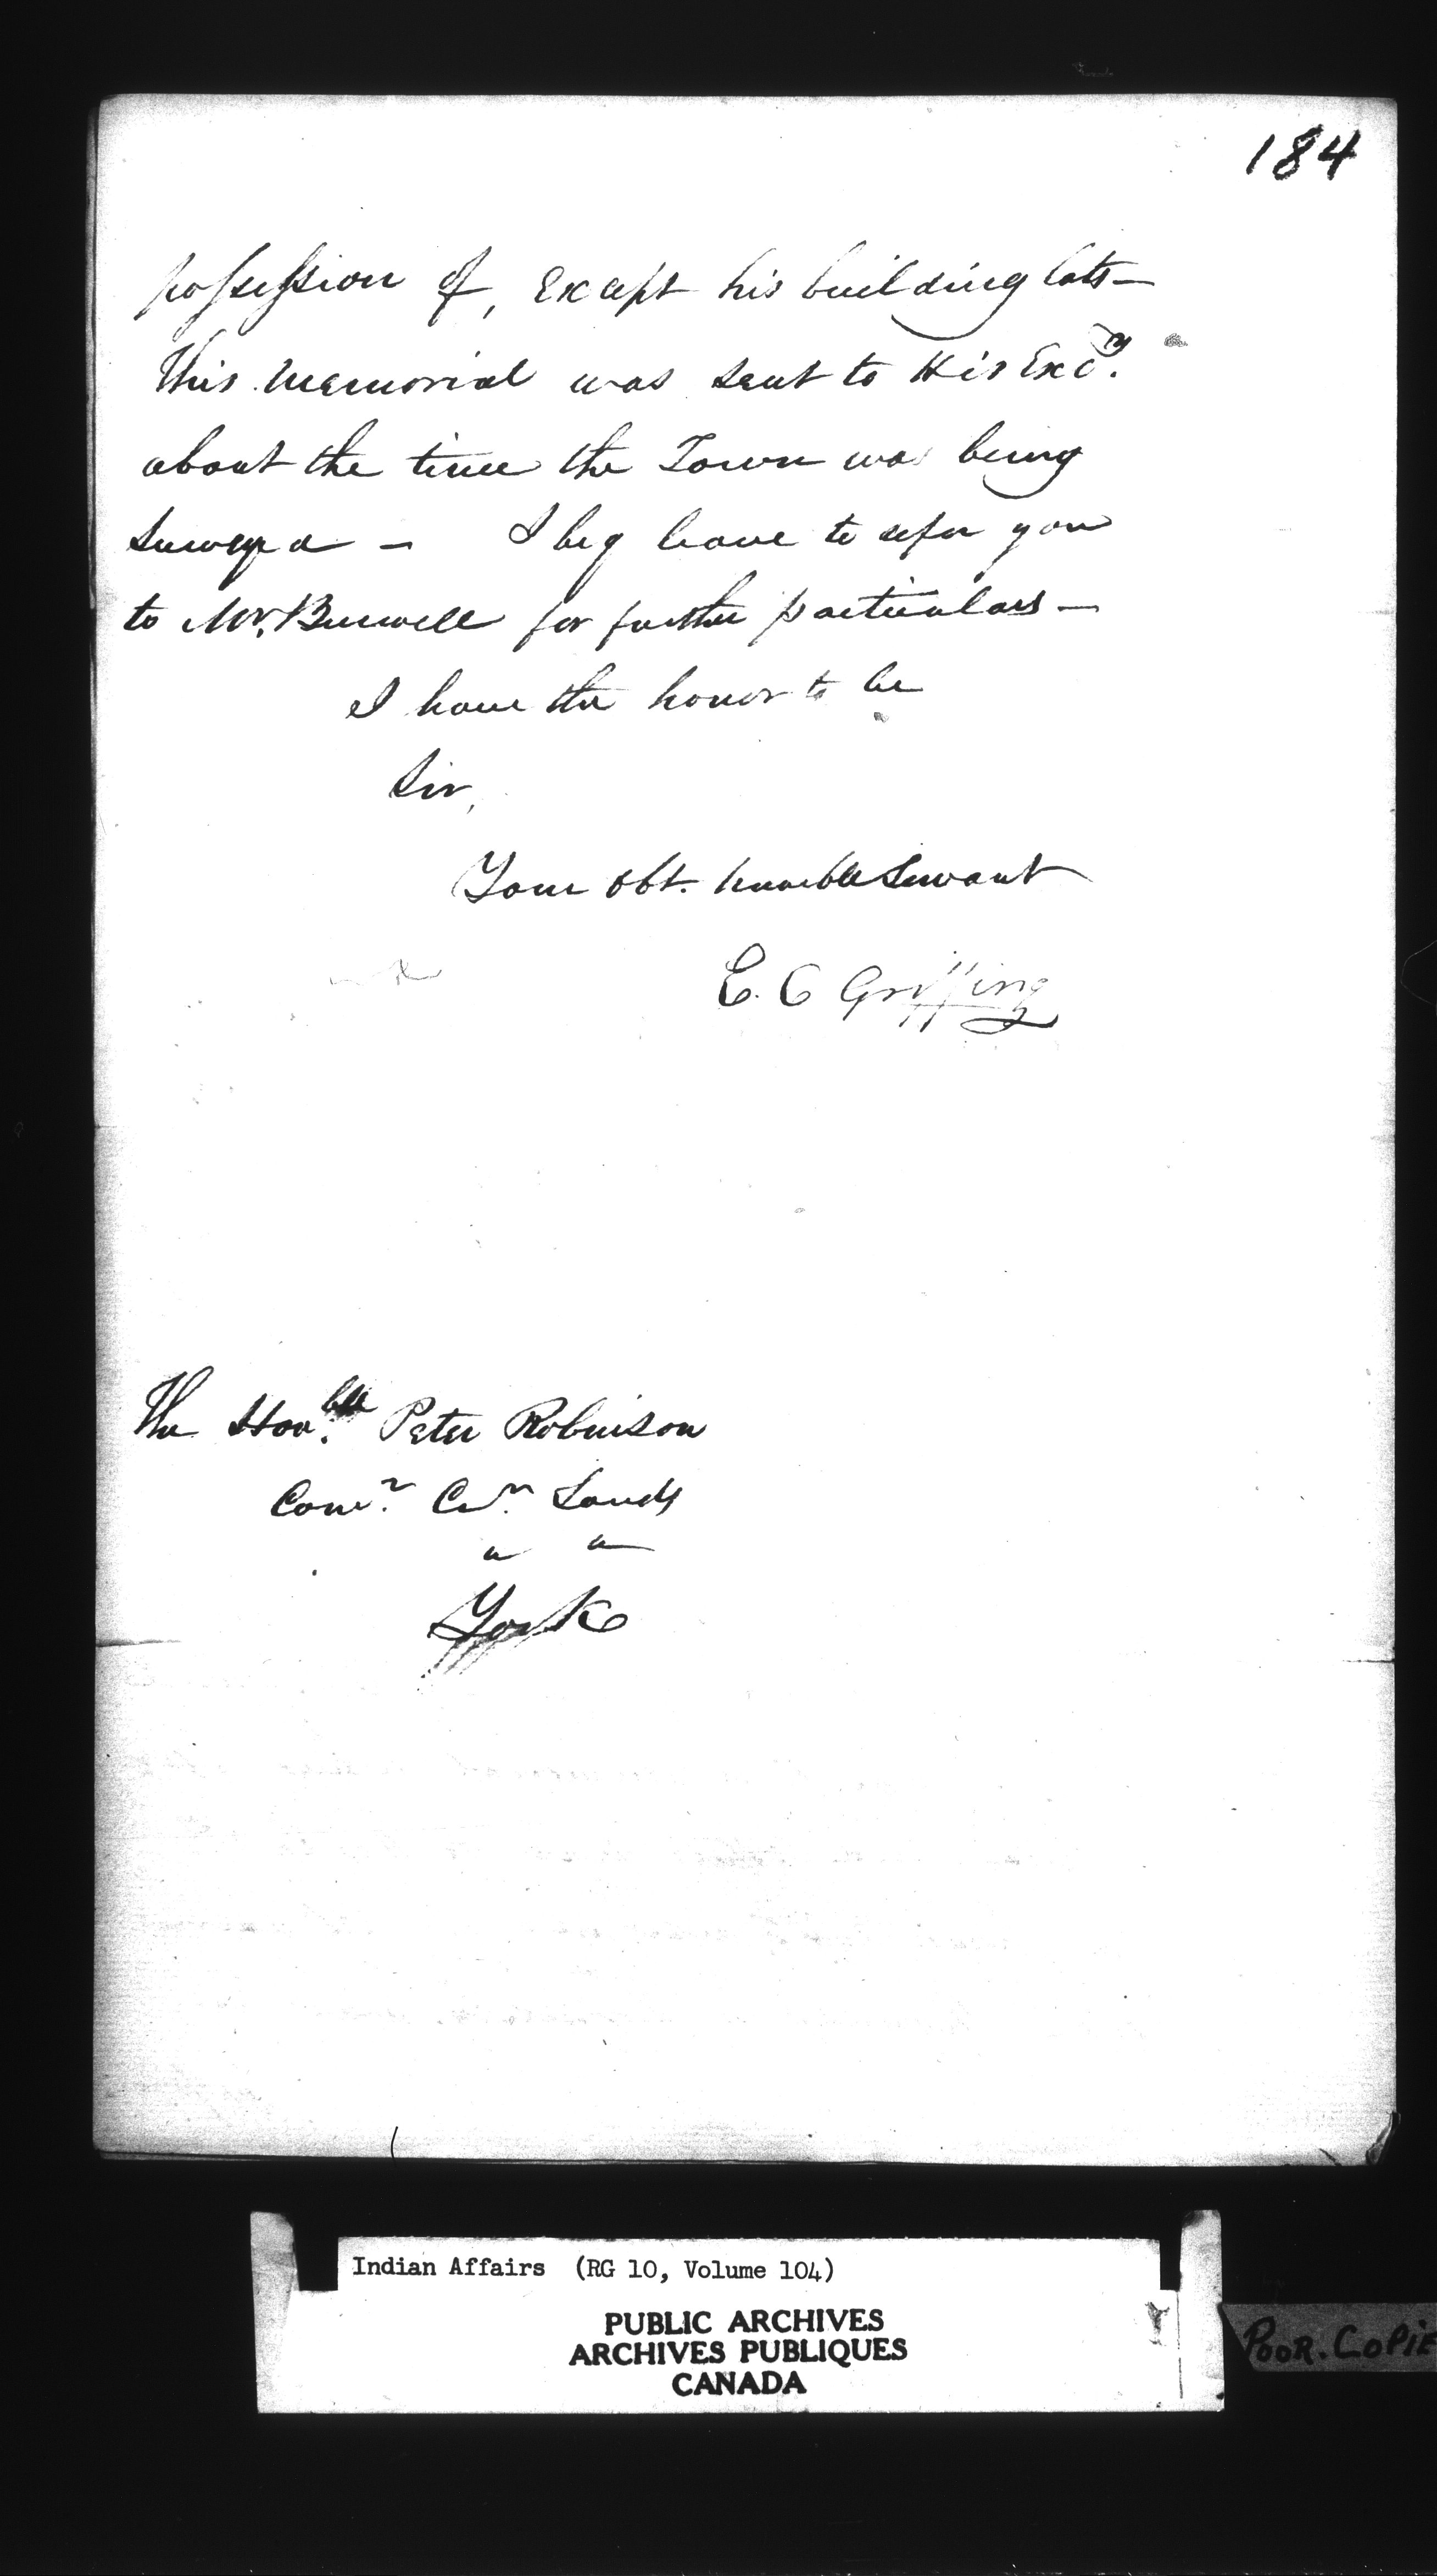 184
possession of, Except his building lots—
This Memorial was sent to His Excy.
about the time the Town was being
Surveyed — I beg leave to refer you
to Mr. Burwell for further particulars—
I have the honor to be
Sir,
Your obt. humble Servant
E. C Griffing
The Honble Peter Robinson
Comr. Cn. Lands
" "
York
Indian Affairs (RG 10, Volume 104)
PUBLIC ARCHIVES
ARCHIVES PUBLIQUES
CANADA
POOR. COPIE